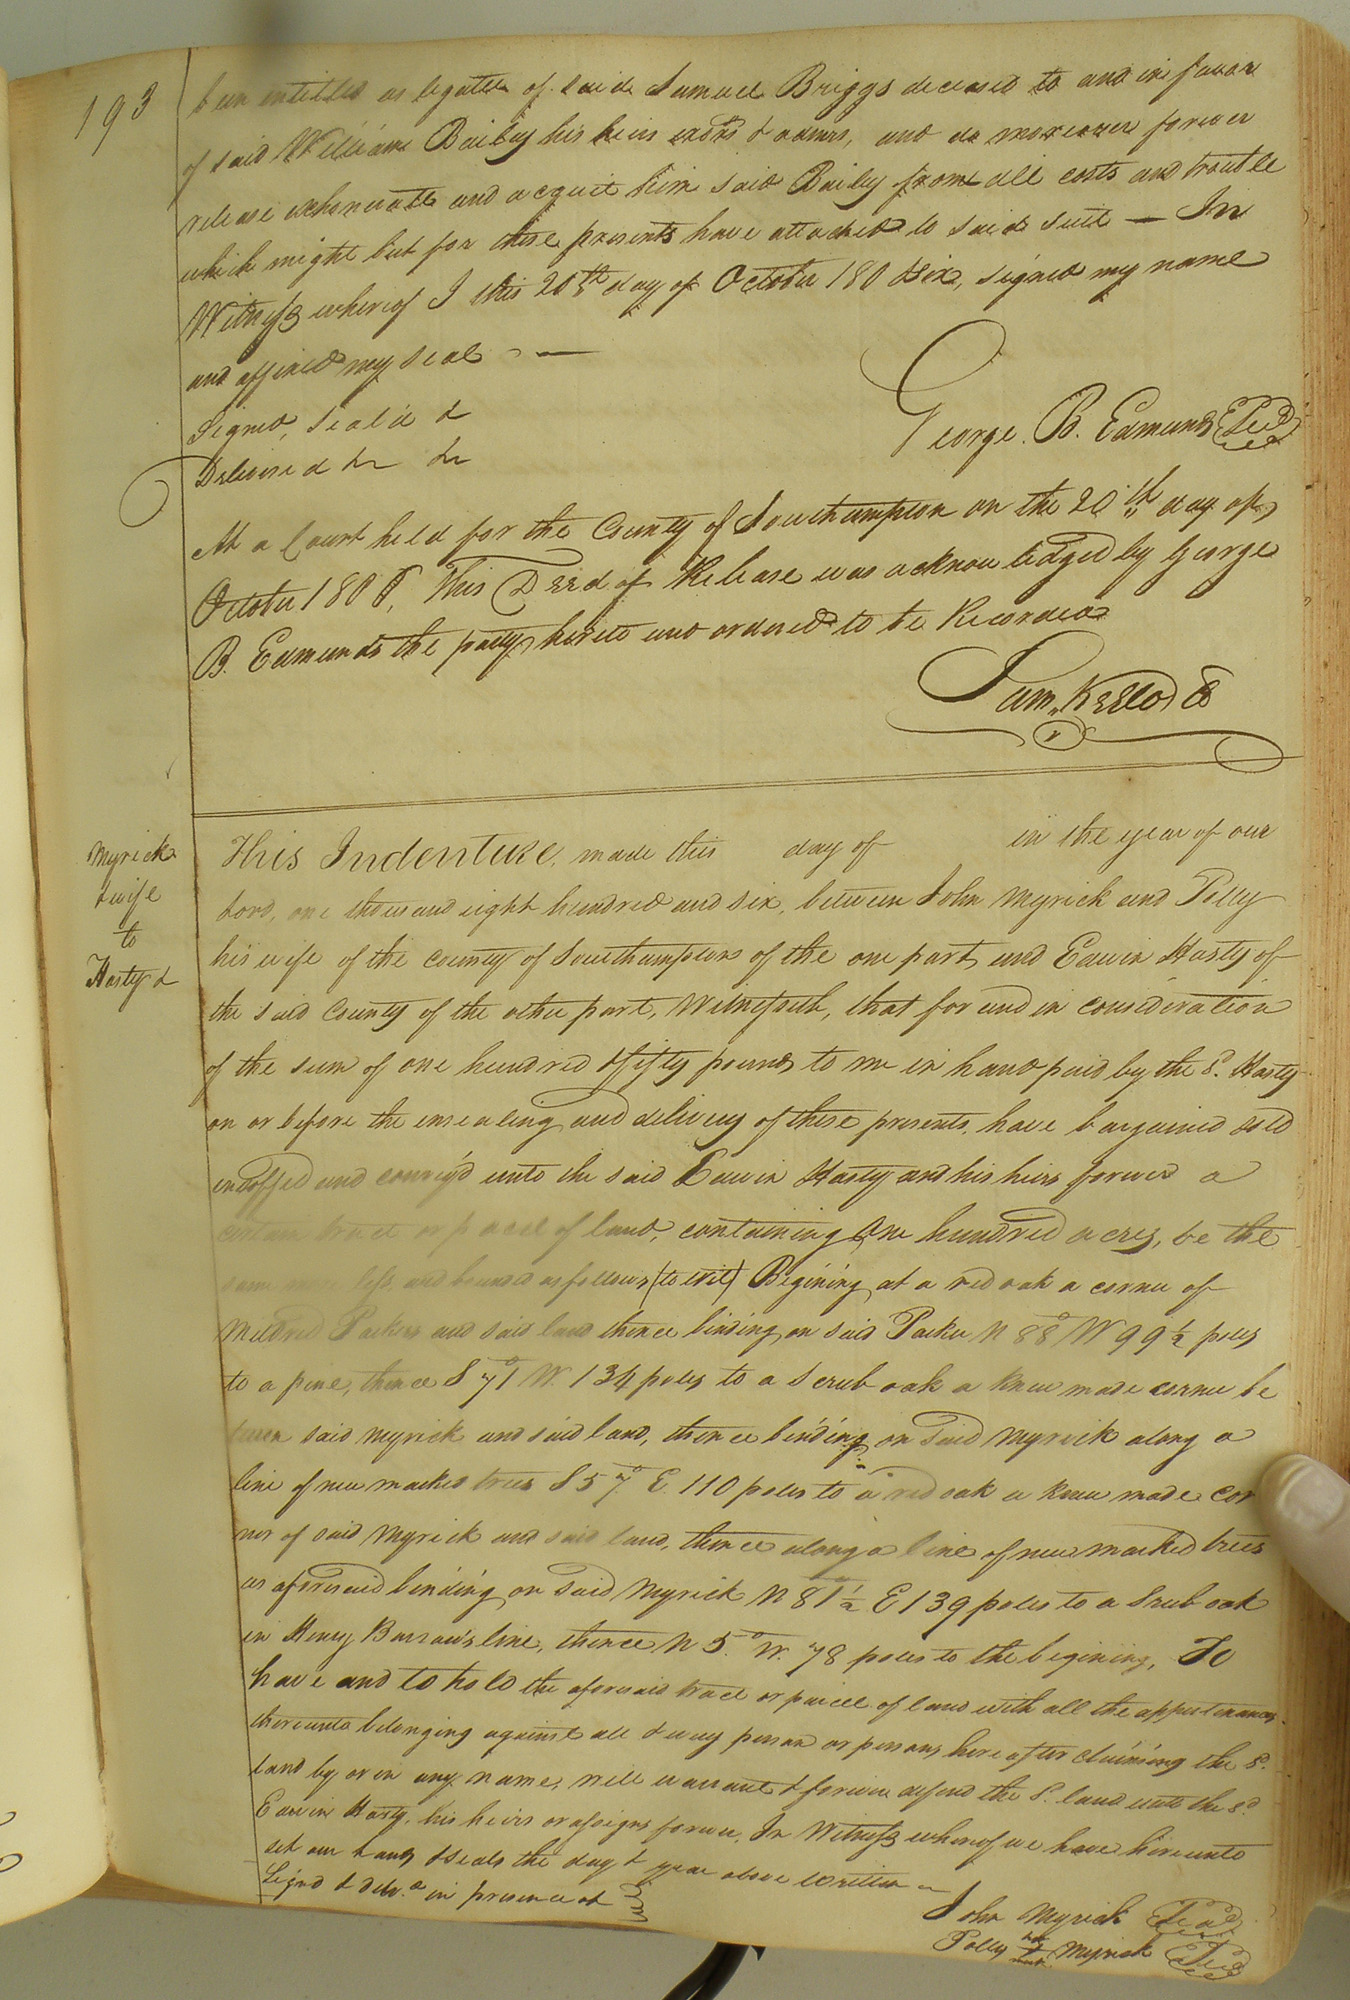 193
been entitled as legatee of said Samuel Briggs deceased to and in favor
of said William Bailey his heirs exōrs & admrs, and do moreover forever
release exhonerate and acquit him said Bailey from all costs and trouble
which might but for these presents have attached to said suit — In
Witness whereof I this 20th day of October 180 six, signed my name
and affixed my seal —
Signed, Seal'd &
Delivered &c &c
George. B. Edmunds Seal
At a Court held for the County of Southampton on the 20th day of
October 1806, This Deed of Release was acknowledged by George
B. Edmunds the party hereto and ordered to be Recorded
Sam. Kello C
Myrick
& wife
to
Hasty d
This Indenture, made this day of in the year of our
Lord, one thousand eight hundred and six, between John Myrick and Polly
his wife of the county of Southampton of the one part, and Edwin Hasty of
the said County of the other part, Witnesseth, that for and in consideration
of the sum of one hundred & fifty pounds to me in hand paid by the Sd. Hasty
on or before the ensealing and delivery of these presents, have bargained sold
enfeoffed and convey'd unto the said Edwin Hasty and his heirs forever a
certain tract or parcel of land, containing One hundred acres, be the
same more or less, and bounded as follows (to wit) Begining at a red oak a corner of
Mildred Parkers and said land thence binding on said Parker N 88° W 99 ½ poles
to a pine, thence S 71° W. 134 poles to a scrub oak a knew made corner be
tween said Myrick and said land, thence binding on said Myrick along a
line of new marked trees S 57° E. 110 poles to a red oak a knew made cor
ner of said Myrick and said land, thence along a line of new marked trees
as aforesaid binding on said Myrick N 81 ½ E 139 poles to a Srub oak
in Henry Barrow's line, thence N 5° W. 78 poles to the begining, To
have and to hold the aforesaid tract or parcel of land with all the appurtenances
thereunto belonging against all & every person or persons hereafter claiming the Sd.
land by or in any name, will warrant & forever defend the Sd. land unto the Sd
Edwin Hasty, his heirs or assigns forever, In Witness whereof we have hereunto
set our hands & seals the day & year above written
Signd & deliv.d in presence of
John Myrick Seal
her
Polly + Myrick Seal
mark